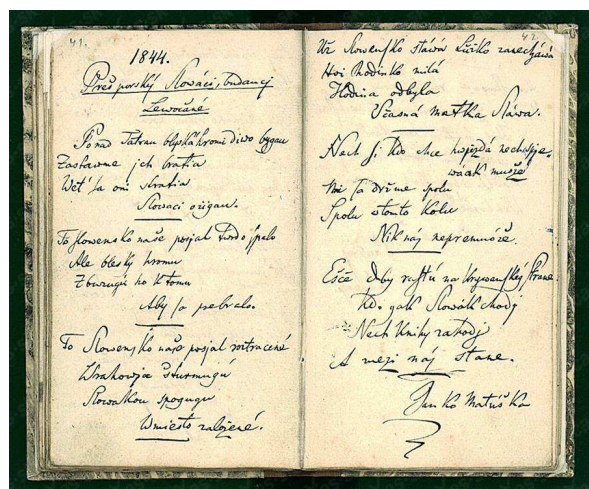 41.
1844.
Prešporský Slowáci, budaucj
Lewočané
Ponad Tatrau blyská hromi diwo bygau
Zastawme jch bratia
Weť sa oni stratia
Slowaci ožigau.
To slowensko naše posjal twrdo spalo
Ale blesky hromu
Zburugú ho k tomu
Aby sa prebralo.
To Slowensko naše posjal
šturmugú
W miesto založené.
42
Už Slowensko stáwa
Hoi Rodinko milá
Hodina odbyla
Včasná matka Sláwa.
Nech si kdo chce
Mi sa držme spolu
Spolu w tomto kolu
Nik nás nepremuože.
Ešče duby rastú na kriwanskej strane.
Kdo gak Slowák chodj
Nech knihy zahodj
A mezi nás stane.
Janko Matúška